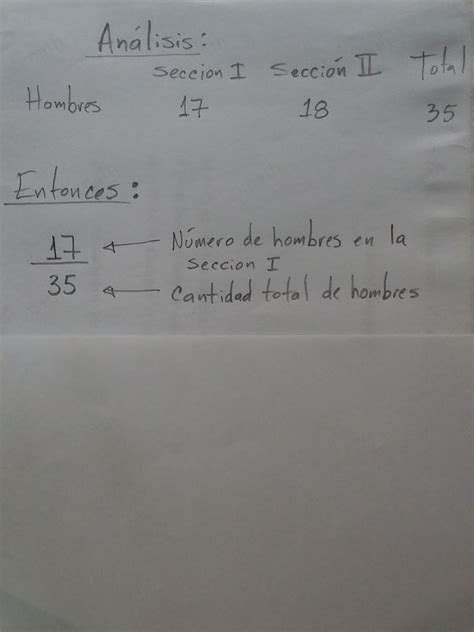 Análisis:
Seccion I Sección II Total
Hombres 17 18 35
Entonces:
17 Número de hombres en la
Seccion I
35 Cantidad total de hombres